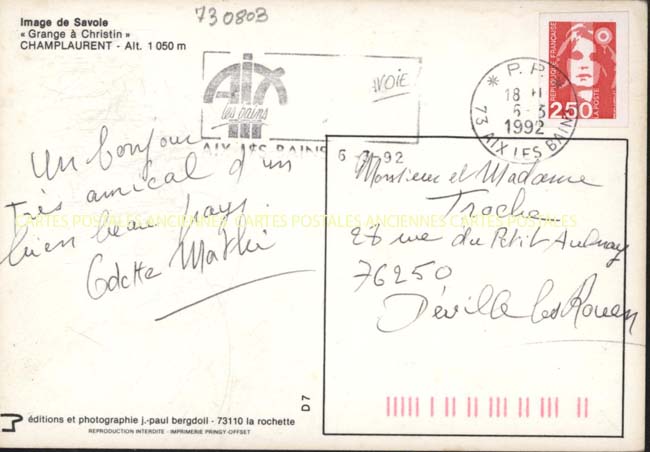 730803
Image de Savoie
« Grange à Christin »
CHAMPLAURENT - Alt. 1 050 m
AIX
les bains
AVOIE
AIX LES BAINS
RÉPUBLIQUE FRANÇAISE
2,50
LA POSTE
* P.P.
18 H
6-3
1992
73 AIX LES BAINS
Un bonjour
très amical d'un
bien beau pays.
Odette
6 3 92
Monsieur et Madame
Troche
27 rue du Petit Aulnay
76250
Déville les Rouen
CARTES POSTALES ANCIENNES CARTES POSTALES ANCIENNES CARTES POSTALES
D 7
éditions et photographie j.-paul bergdoll - 73110 la rochette
REPRODUCTION INTERDITE - IMPRIMERIE PRINGY-OFFSET